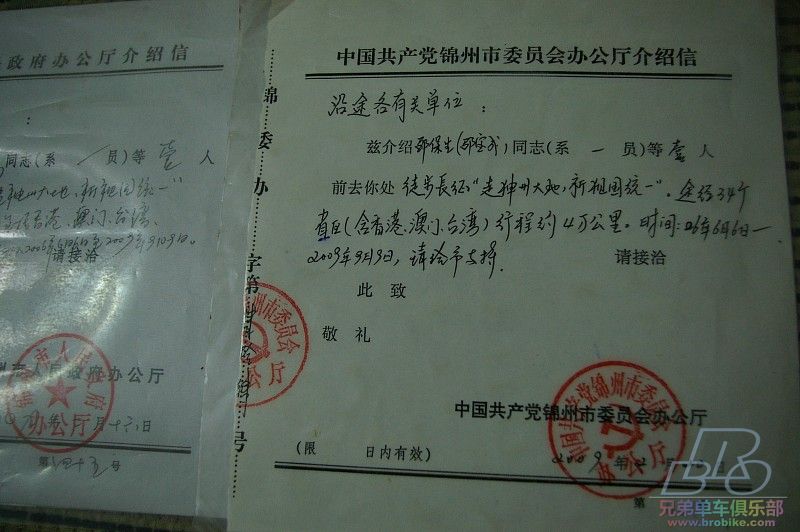 政府办公厅介绍信
：
同志(系 一 员)等 壹 人
神州大地，新祖国统一"
香港、澳门、台湾
请接洽
人民政府办公厅
月十六日
第 号
锦委办字第 号
中国共产党锦州市委员会办公厅介绍信
沿途各有关单位：
兹介绍 同志(系 一 员)等 壹 人
前去你处徒步长征"走神州大地，新祖国统一"。途经34个
省区(含香港、澳门、台湾)行程约4万公里。时间：06年6月6日—
2009年9月9日，请给予支持。 请接洽
此 致
敬 礼
中国共产党锦州市委员会办公厅
(限 日内有效)
2009年
第
中国共产党锦州市委员会
办公厅
BRO
兄弟单车俱乐部
www.brobike.com